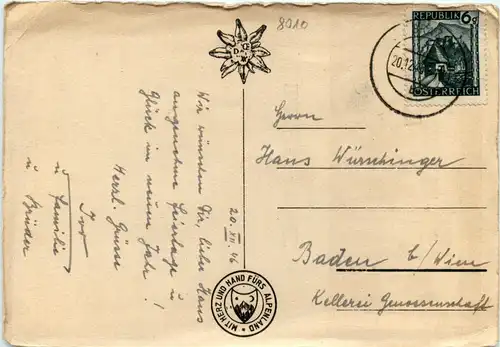 8010
REPUBLIK 6g
ÖSTERREICH
20.12.
20. XII. 46
Wir wünschen Dir, lieber Hans
angenehme Feiertage u
Glück im neuen Jahr!
Herzl. Grüsse
u Familie
u Brüder
Herrn
Hans Würschinger
Baden b/Wien
Kellerei Genossenschaft
MIT HERZ UND HAND FÜRS ALPENLAND